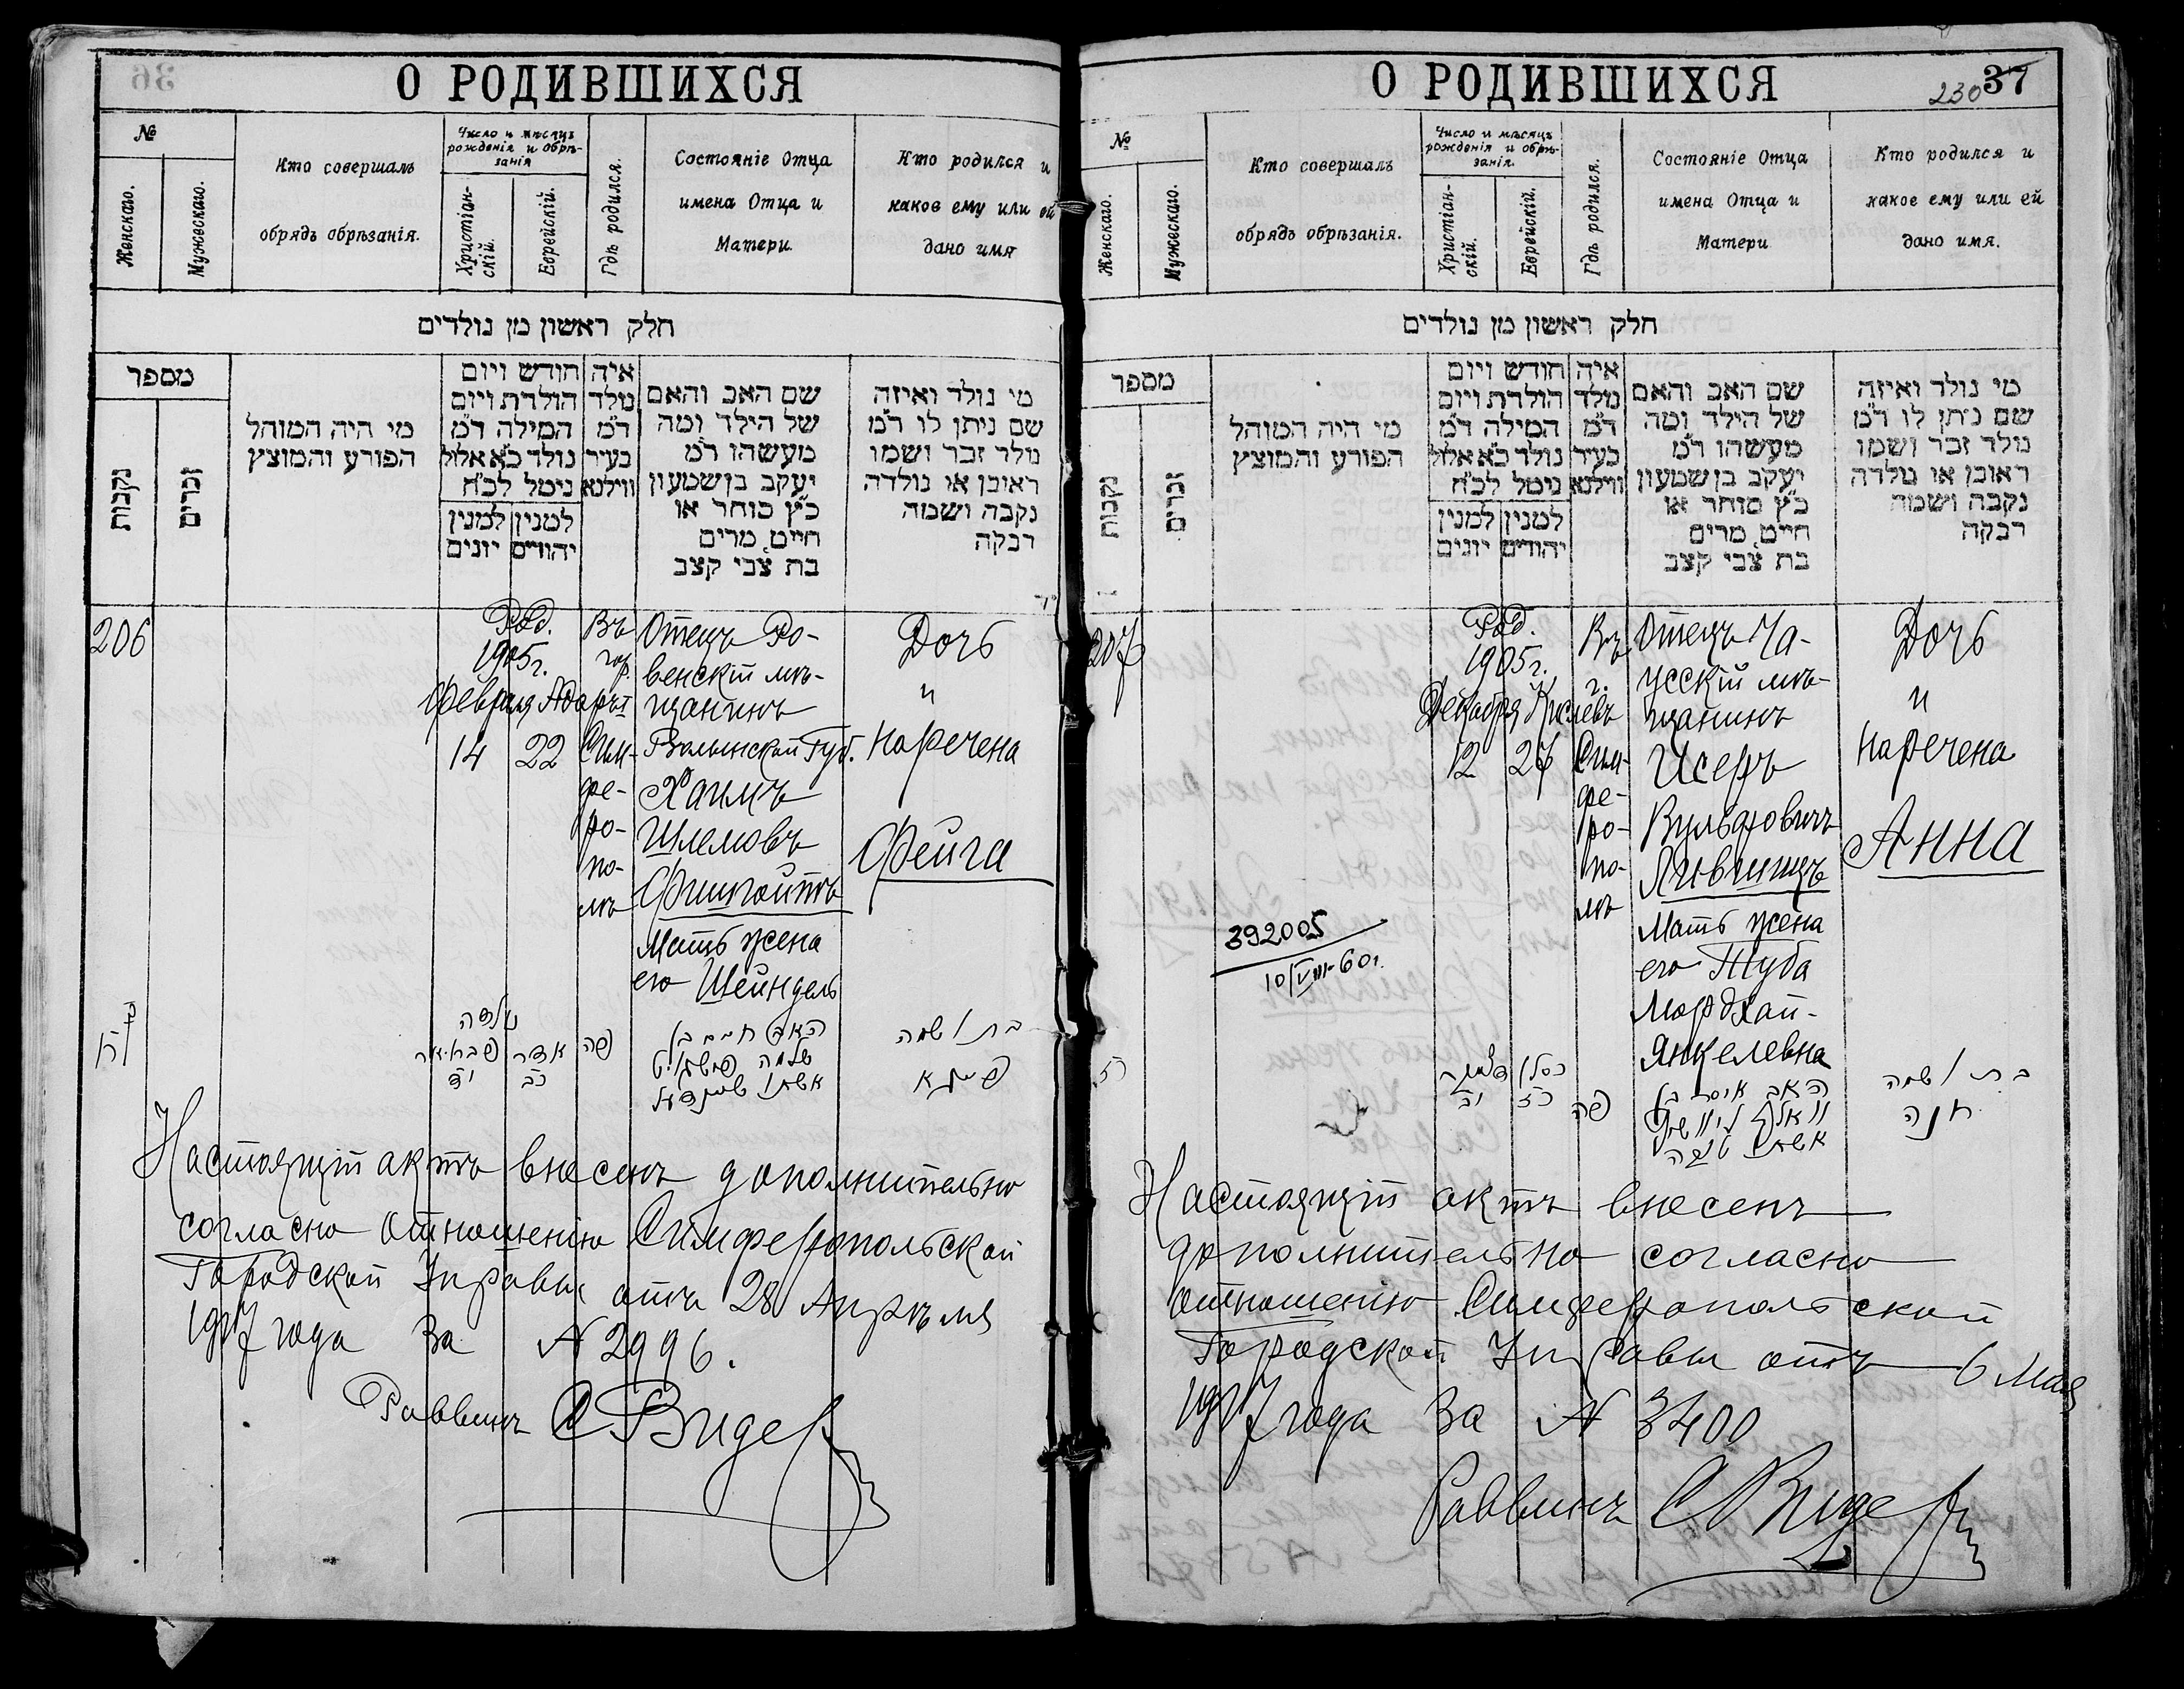 О РОДИВШИХСЯ
№
Женскаго.
Мужескаго.
Кто совершалъ
обрядъ обрѣзанія.
Число и мѣсяцъ
рожденія и обрѣ-
занія
Христіан-
скій.
Еврейскій.
Гдѣ родился.
Состояніе Отца
имена Отца и
Матери.
Кто родился и
какое ему или ей
дано имя
חלק ראשון מן נולדים
מספר
נקבות
זכרים
מי היה המוהל
הפורע והמוצץ
חודש ויום
הולדת ויום
המילה ד״מ
נולד כ״א אלול
ניטל לכ״ח
למנין יהודים
למנין יונים
איה
נולד
ד״מ
בעיר
ווילנא
שם האב והאם
של הילד ומה
מעשהו ד״מ
יעקב בן שמעון
כ״ץ סוחר או
חייט, מרים
בת צבי קצב
מי נולד ואיזה
שם ניתן לו ד״מ
נולד זכר ושמו
ראובן או נולדה
נקבה ושמה
רבקה
206
Род.
1905 г.
Февраля Адаръ I
14 22
Въ
гор.
Сим-
фе-
ро-
по-
лѣ
Отецъ Ро-
венскій мѣ-
щанинъ
Волынской Губ.
Хаимъ
Шлемовъ
Фишгойтъ
Мать жена
его Шейндель
Дочь
и
наречена
Фейга
נולדה
פברואר
י״ד
אדר
כ״ב
פה
האב חיים בן
שלמה פישגויט
אשתו שיינדעל
בת ושמה
פייגא
Настоящій актъ внесенъ дополнительно
согласно отношенію Симферопольской
Городской Управы отъ 28 Апрѣля
1917 года за № 2996.
Раввинъ С Видер
О РОДИВШИХСЯ
230
37
№
Женскаго.
Мужескаго.
Кто совершалъ
обрядъ обрѣзанія.
Число и мѣсяцъ
рожденія и обрѣ-
занія.
Христіан-
скій.
Еврейскій.
Гдѣ родился.
Состояніе Отца
имена Отца и
Матери
Кто родился и
какое ему или ей
дано имя.
חלק ראשון מן נולדים
מספר
נקבות
זכרים
מי היה המוהל
הפורע והמוצץ
חודש ויום
הולדת ויום
המילה ד״מ
נולד כ״א אלול
ניטל לכ״ח
למנין יהודים
למנין יונים
איה
נולד
ד״מ
בעיר
ווילנא
שם האב והאם
של הילד ומה
מעשהו ד״מ
יעקב בן שמעון
כ״ץ סוחר או
חייט, מרים
בת צבי קצב
מי נולד ואיזה
שם ניתן לו ד״מ
נולד זכר ושמו
ראובן או נולדה
נקבה ושמה
רבקה
207
392005
10/VIII-60 г.
Род.
1905 г.
Декабря Кислевъ
12 27
Въ
г.
Сим-
фе-
ро-
по-
лѣ
Отецъ Ча-
усскій мѣ-
щанинъ
Исеръ
Вульфовичъ
Лившицъ
Мать жена
его Туба
Мордхай-
Янкелевна
Дочь
и
наречена
Анна
י״ב
כסלו
כ״ז
פה
האב איסר בן
וואלף ליוושיץ
אשתו טובה
בת ושמה
חנה
Настоящій актъ внесенъ
дополнительно согласно
отношенію Симферопольской
Городской Управы отъ 6 Мая
1917 года за № 3400
Раввинъ С Видер